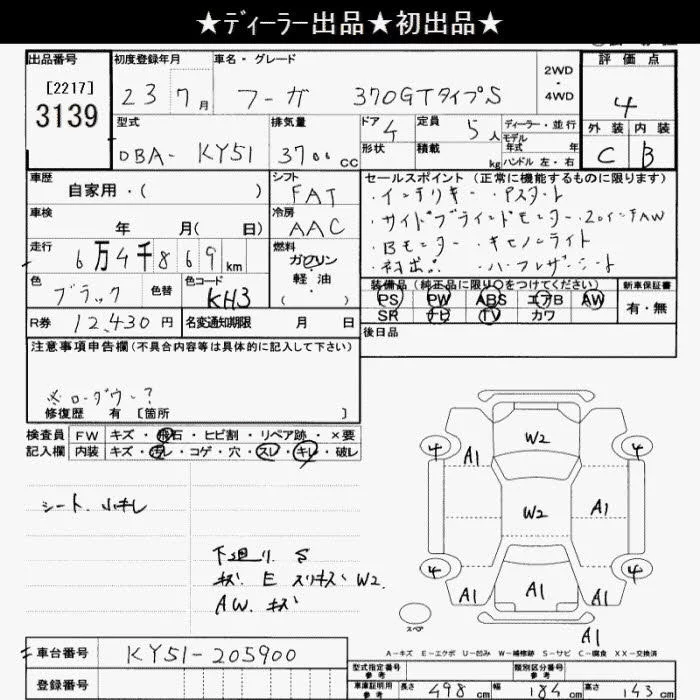 ★ディーラー出品★初出品★
出品番号
[2217]
3139
初度登録年月
23 7月
車名・グレード
フーガ 370GTタイプS
2WD
・
4WD
評価点
4
外装 内装
C B
型式
DBA- KY51
排気量
3700 CC
ドア 4
形状
定員 5人
積載 kg
ディーラー・並行
モデル
年式 年
ハンドル 左・右
車歴
自家用・( )
シフト
FAT
車検
年 月( 日)
冷房
AAC
走行
6万4千869km
燃料
ガソリン
軽油
( )
色
ブラック
色替
色コード
KH3
R券 12,430円
名変通知期限 月 日
セールスポイント (正常に機能するものに限ります)
・インテリキー ・Pスタート
・サイドブラインドモニター ・20インチAW
・Bモニター ・キセノンライト
・初出品 ・ハーフレザーシート
装備品 (純正品に限り○をつけてください)
PS PW ABS エアB AW
SR ナビ TV カワ
新車保証書
有・無
後日品
注意事項申告欄(不具合内容等は具体的に記入して下さい)
※ローダウン?
修復歴 有 [箇所 ]
検査員 FW キズ・飛石・ヒビ割・リペア跡・×要
記入欄 内装 キズ・汚レ・コゲ・穴・スレ・キレ・破レ
シート小キレ
下廻り S
キズ E スリキズ W2
AW キズ
W2
4 A1 4
W2 A1
4 4
A1 A1 A1
A1
スペア
A-キズ E-エクボ U-凹み W-補修跡 S-サビ C-腐食 XX-交換済
車台番号 KY51-205900
登録番号
型式指定番号
参考
類別区分番号
参考
車庫証明用
参考
長さ 498cm 幅 184cm 高さ 143cm